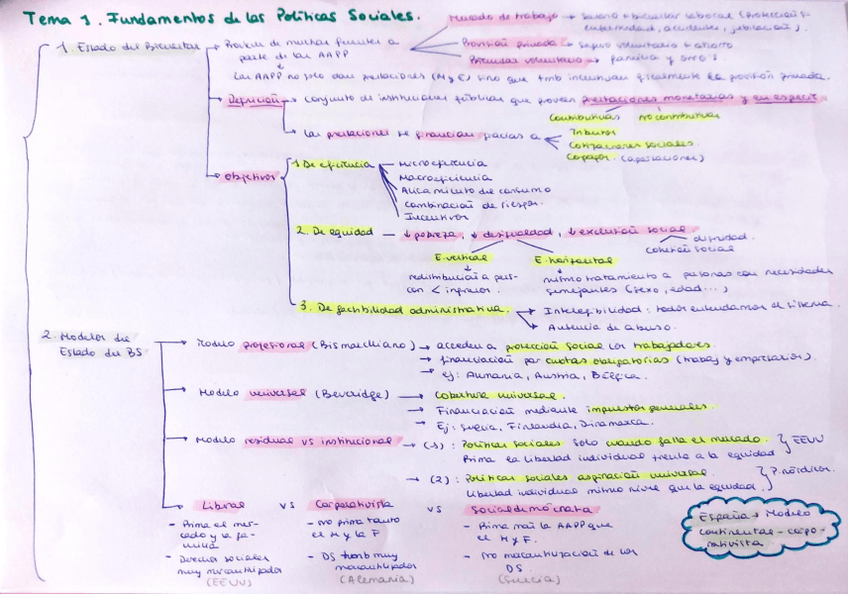 Tema 1. Fundamentos de las Políticas Sociales.
Mercado de trabajo → salario + bienestar laboral (protección enfermedad, accidentes, jubilación).
1. Estado del Bienestar
Provisión de muchas fuentes a parte de las AAPP
Provisión privada → seguro voluntario + ahorro
Bienestar voluntario → familia y otros
Las AAPP no solo dan prestaciones (M y E) sino que tmb incentivan fiscalmente la provisión privada.
Definición → Conjunto de instituciones públicas que proveen prestaciones monetarias y en especie
Contributivas
no contributivas
Las prestaciones se financian gracias a
Tributos
Cotizaciones sociales.
Copagos (aportaciones)
Objetivos
1. De eficiencia
Microeficiencia
Macroeficiencia
Alisamiento del consumo
Combinación de riesgos.
Incentivos
2. De equidad — ↓ pobreza, ↓ desigualdad, ↓ exclusión social
dignidad.
cohesión social
E. vertical
E. horizontal
redistribución a pers. con < ingresos.
mismo tratamiento a personas con necesidades semejantes (sexo, edad...)
3. De factibilidad administrativa.
Inteligibilidad: todos entendamos el sistema.
Ausencia de abuso.
2. Modelos de Estado del BS
Modelo profesional (Bismarckiano) → acceden a protección social los trabajadores.
→ financiación por cuotas obligatorias (trabaj y empresarios).
→ ej: Alemania, Austria, Bélgica.
Modelo universal (Beveridge) → Cobertura universal.
→ Financiación mediante impuestos generales.
→ Ej: Suecia, Finlandia, Dinamarca.
Modelo residual vs institucional → (1): Políticas sociales solo cuando falla el mercado. } EEUU
Prima la libertad individual frente a la equidad
→ (2): Políticas sociales aspiración universal. } P. nórdicos
Libertad individual mismo nivel que la equidad.
Liberal vs Corporativista vs Socialdemócrata
- Prima el mercado y la familia
- Derechos sociales muy mercantilizados
(EEUU)
- No prima tanto el M y la F
- DS tamb muy mercantilizados
(Alemania)
- Prima más la AAPP que el M y F.
- No mercantilización de los DS.
(Suecia)
España → Modelo continental-corporativista